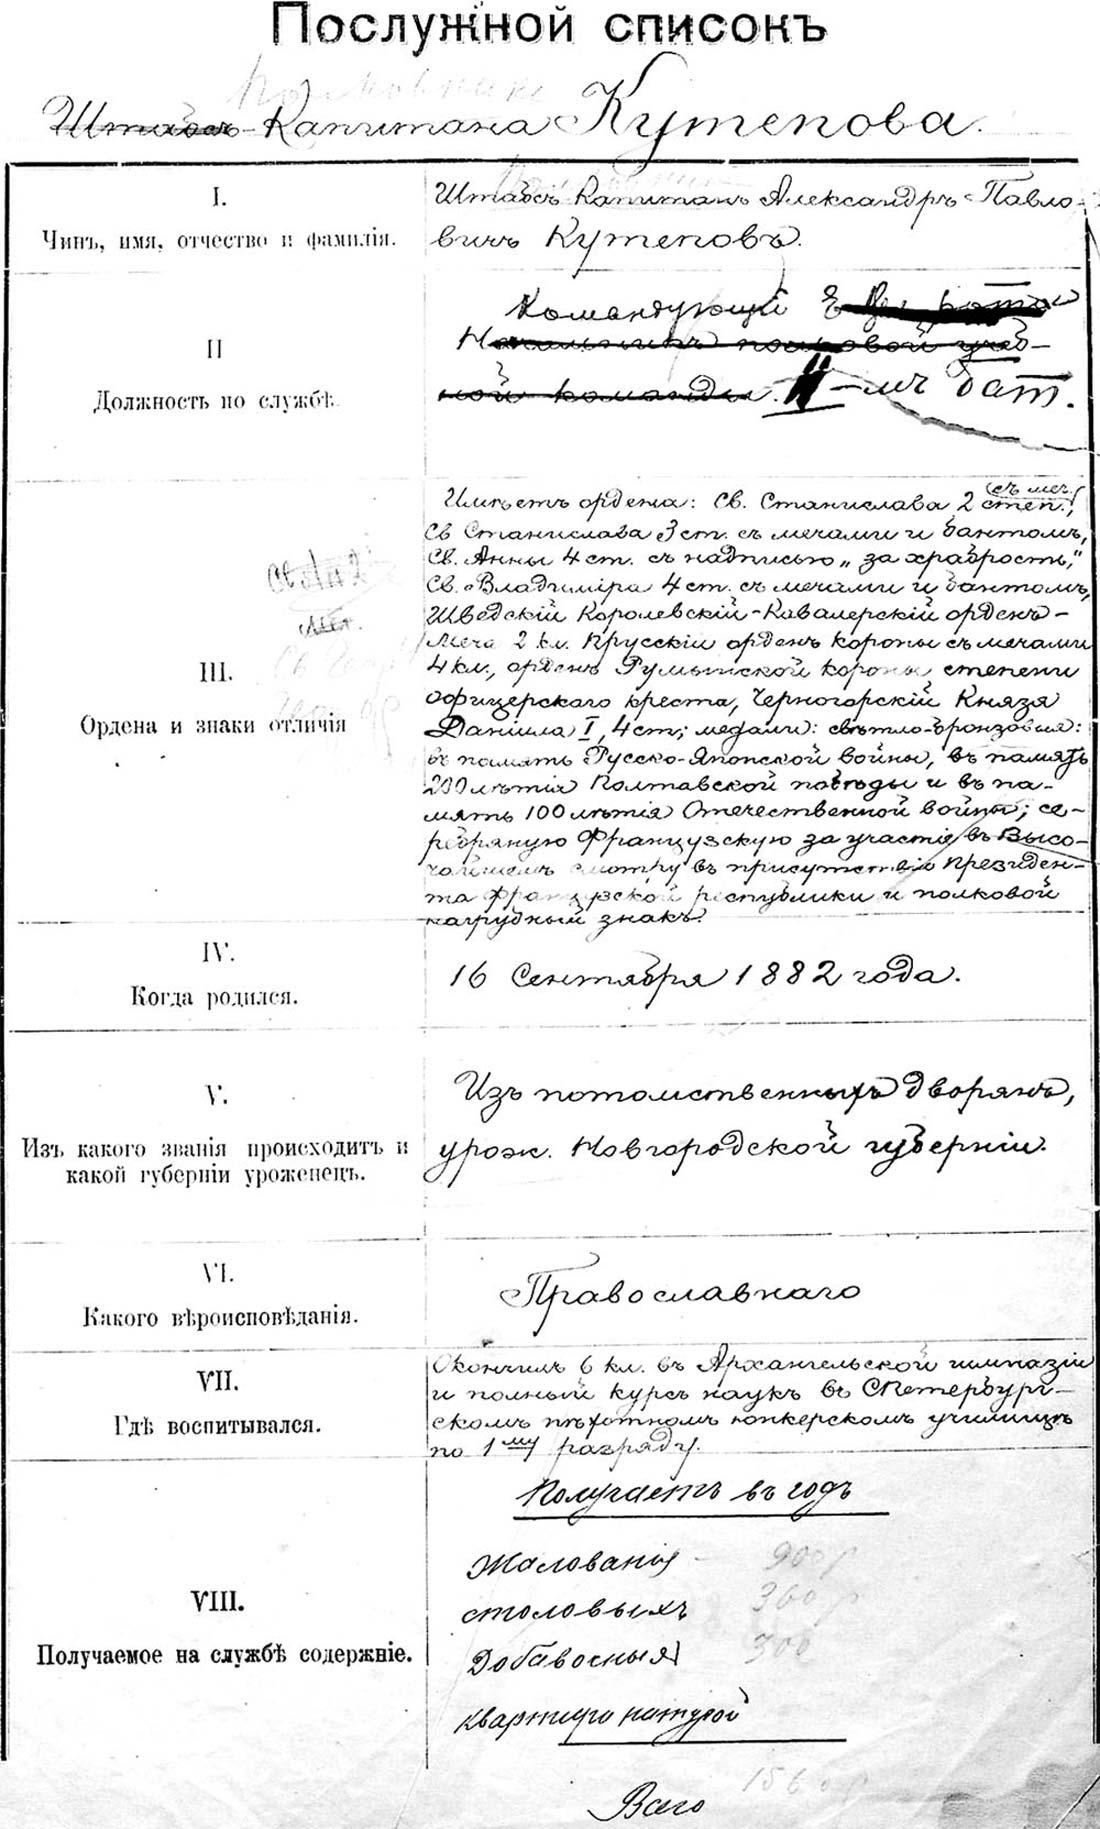 Послужной списокъ
Полковника
Штабсъ-Капитана Кутепова.
I.
Чинъ, имя, отчество и фамилія.
Штабсъ Капитанъ Александръ Павло-
вичъ Кутеповъ.
II
Должность по службѣ.
Командующій
Начальникъ полковой учеб-
ной команды. II-мъ бат.
III.
Ордена и знаки отличія
Св Ан 2
Имѣетъ ордена: Св. Станислава 2 степ.,
съ меч.
Св Станислава 3 ст. съ мечами и бантомъ,
Св. Анны 4 ст. съ надписью „за храбрость,"
Св. Владиміра 4 ст. съ мечами и бантомъ,
Шведскій Королевскій-Кавалерскій орденъ-
Меча 2 кл. Прусскій орденъ короны съ мечами
4 кл., орденъ Румынской короны степени
офицерскаго креста, Черногорскій Князя
Даніила I, 4 ст; медали: свѣтло-бронзовыя:
въ память Русско-Японской войны, въ память
200 лѣтія Полтавской побѣды и въ па-
мять 100 лѣтія Отечественной войны; се-
ребряную Французскую за участіе въ Высо-
чайшемъ смотру въ присутствіи Президен-
та Французской республики и полковой
нагрудный знакъ.
IV.
Когда родился.
16 Сентября 1882 года.
V.
Изъ какого званія происходитъ и
какой губерніи уроженецъ.
Изъ потомственныхъ дворянъ,
урож. Новгородской губерніи.
VI.
Какого вѣроисповѣданія.
Православнаго
VII.
Гдѣ воспитывался.
Окончилъ 6 кл. въ Архангельской гимназіи
и полный курсъ наукъ въ СПетербург-
скомъ пѣхотномъ юнкерскомъ училищѣ
по 1му разряду.
VIII.
Получаемое на службѣ содержніе.
Получаетъ въ годъ
Жалованія - 900 р
столовыхъ 360 р
Добавосныя 300
квартира натурой
1560 р
Всего